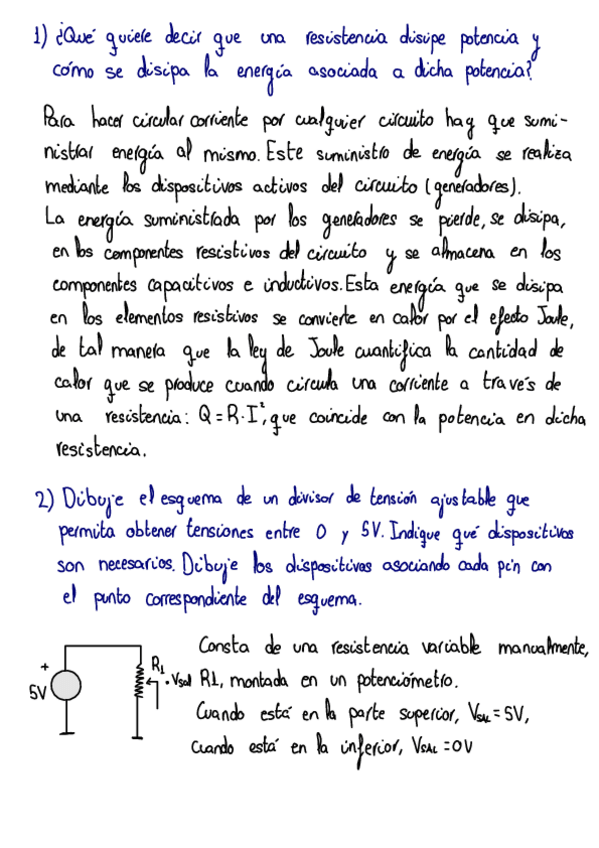 1) ¿Qué quiere decir que una resistencia disipe potencia y
cómo se disipa la energía asociada a dicha potencia?
Para hacer circular corriente por cualquier circuito hay que sumi-
nistrar energía al mismo. Este suministro de energía se realiza
mediante los dispositivos activos del circuito (generadores).
La energía suministrada por los generadores se pierde, se disipa,
en los componentes resistivos del circuito y se almacena en los
componentes capacitivos e inductivos. Esta energía que se disipa
en los elementos resistivos se convierte en calor por el efecto Joule,
de tal manera que la ley de Joule cuantifica la cantidad de
calor que se produce cuando circula una corriente a través de
una resistencia: Q = R·I², que coincide con la potencia en dicha
resistencia.
2) Dibuje el esquema de un divisor de tensión ajustable que
permita obtener tensiones entre 0 y 5V. Indique qué dispositivos
son necesarios. Dibuje los dispositivos asociando cada pin con
el punto correspondiente del esquema.
+
5V
R1
Vsal
Consta de una resistencia variable manualmente,
R1, montada en un potenciómetro.
Cuando está en la parte superior, VSAL = 5V,
cuando está en la inferior, VSAL = 0V